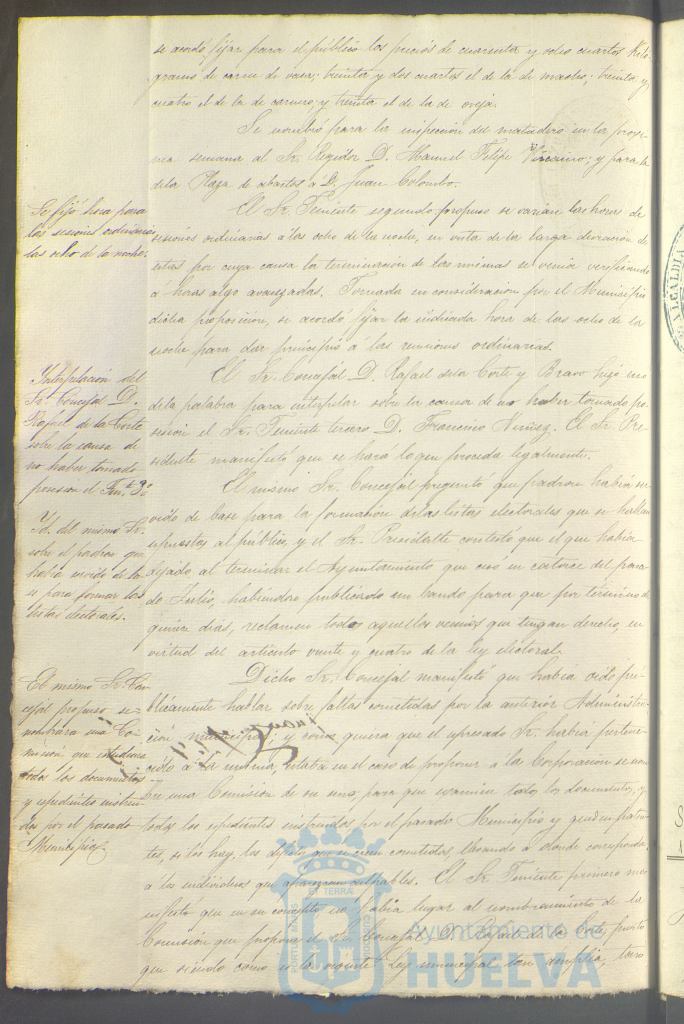 se acordó fijar para el público los precios de cuarenta y ocho cuartos Kilo-
gramo de carne de vaca; treinta y dos cuartos el de la de macho; treinta y
cuatro el de la de carnero y treinta el de la de oveja.
Se nombró para la inspeccion del matadero en la proxi-
ma semana al Sr. Regidor D. Manuel Felipe Vizcaino; y para la
de la Plaza de abastos á D. Juan Colombo.
Se fijó hora para
las sesiones ordinarias
las ocho de la noche.
El Sr. Teniente segundo propuso se varian las horas de
sesiones ordinarias á las ocho de la noche, en vista de la larga duracion de
estas por cuya causa la terminacion de las mismas se venia verificando
á horas algo avanzadas. Tomada en consideracion por el Municipio
dicha proposicion, se acordó fijar la indicada hora de las ocho de la
noche para dar principio á las reuniones ordinarias.
Interpelación del
Sr. Concejal D.
Rafael de la Corte
sobre la causa de
no haber tomado
posesion el Tnte. 3º
El Sr. Concejal D. Rafael de la Corte y Bravo hizo uso
de la palabra para interpelar sobre la causa de no haber tomado po-
sesion el Sr. Teniente tercero D. Francisco Nuñez. El Sr. Pre-
sidente manifestó que se hara lo que proceda legalmente.
Yd. del mismo Sr.
sobre el padron que
habia servido de ba-
se para formar las
listas electorales.
El mismo Sr. Concejal preguntó que padron habia ser-
vido de base para la formacion de las listas electorales que se hallan
expuestas al público, y el Sr. Presidente contestó que el que habia
dejado al terminar el Ayuntamiento que cesó en catorce del pasa-
do Julio, habiendose publicado un bando para que por término de
quince dias, reclamen todos aquellos vecinos que tengan derecho, en
virtud del artículo veinte y cuatro de la ley electoral.
El mismo Sr. Con-
cejal propuso se
nombrara una Co-
mision que
todos los documentos
y espedientes instrui-
dos por el pasado
Municipio
Dicho Sr. Concejal manifestó que habia oido pú-
blicamente hablar sobre faltas cometidas por la anterior Administra-
cion municipal; y como quiera que el espresado Sr. habia pertene-
cido á la misma, estaba en el caso de proponer á la Corporacion se nom-
bre una Comision de su seno, para que examine todos los documentos, y
todos los espedientes instruidos por el pasado Municipio y
si los hay, los cometidas, llevando á donde corresponda
á los individuos que aparezcan culpables. El Sr. Teniente primero ma-
nifestó que en su concepto no habia lugar al nombramiento de la
Comision que propone el Sr. Concejal D. Rafael de la Corte, puesto
que siendo como es la vigente Ley municipal tan
ALCALDIA
PORTUS MARIS ET TERRÆ CUSTODIA
Ayuntamiento de
HUELVA